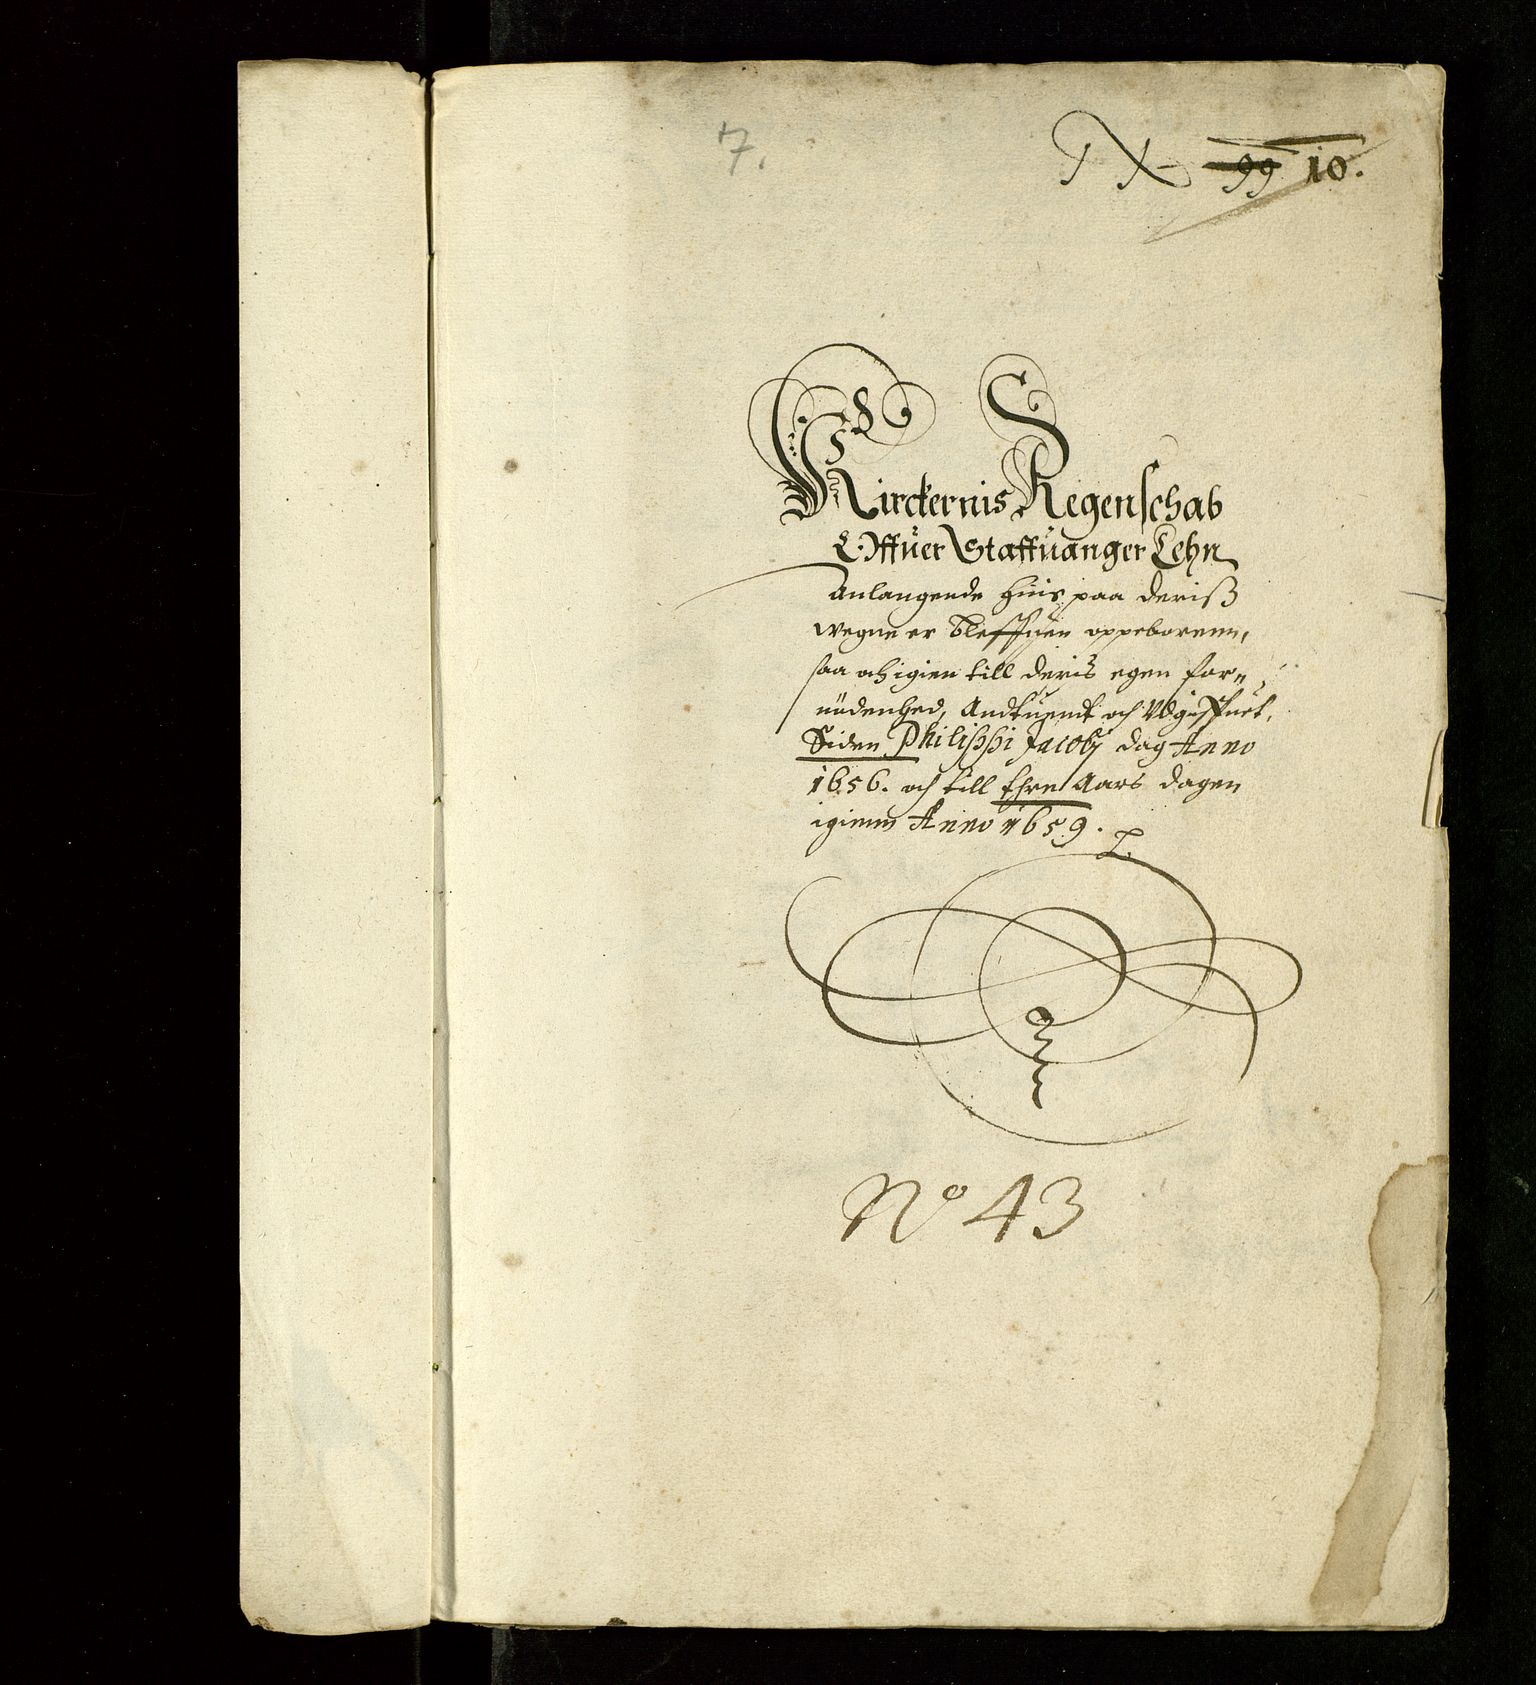 7.
99 10.
Kirckernis Regenschab
Offuer Staffuanger Lehn
Anlangende huis paa deriß
wegne er bleffuen oppeborenn,
saa och igien till deris egen for„
nödenhed, Andtuendt och Vdgiffuet,
Siden Philippi Jacobj dag Anno
1656. och till Ehre Aars dagen
igienn Anno 1659.
No 43